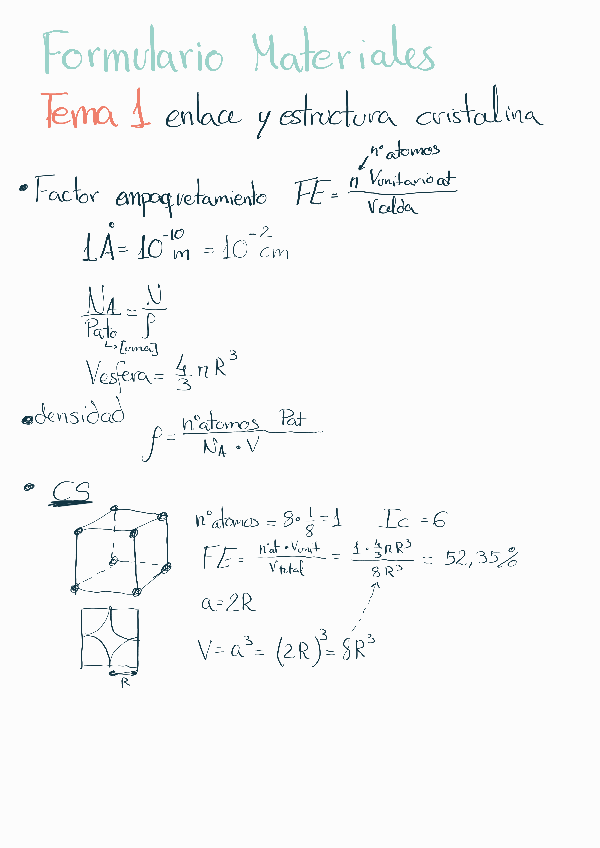 Formulario Materiales
Tema 1 enlace y estructura cristalina
n° atomos
• Factor empaquetamiento FE = n Vunitario at / Vcelda
1 Å = 10^-10 m = 10^-2 cm
N_A / Pato = N / ρ
↳ [uma]
Vesfera = 4/3 · π R^3
• densidad
ρ = n° atomos Pat / N_A · V
• CS
n° atomos = 8 · 1/8 = 1 Ic = 6
FE = n°at · Vunit / Vtotal = 1 · 4/3 π R^3 / 8 R^3 = 52,35%
a = 2R
V = a^3 = (2R)^3 = 8R^3
R